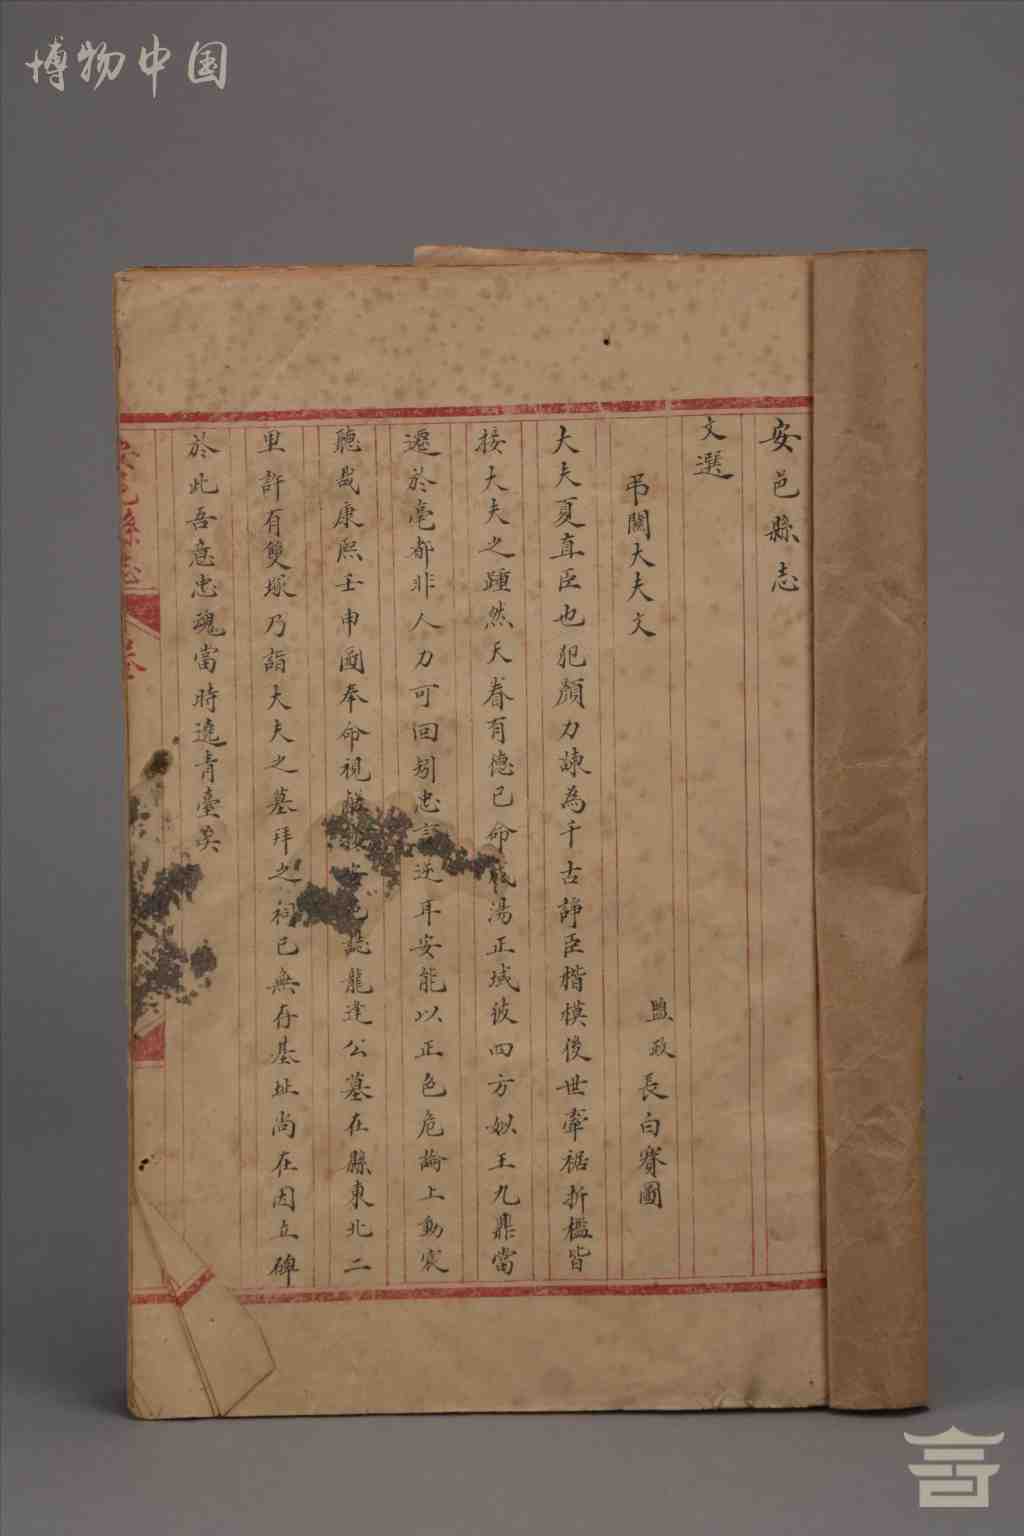 博物中国
安邑縣志
文選
弔關大夫文
盬政長白賽圖
大夫夏直臣也犯顏力諫為千古諍臣楷模後世牽裾折檻皆
接大夫之踵然天眷有德已命成湯正域彼四方姒王九鼎當
遷於亳都非人力可回矧忠言逆耳安能以正色危論上動宸
聽哉康熙壬申圖奉命視鹺安邑誌龍逄公墓在縣東北二
里許有雙塚乃詣大夫之墓拜之祠已無存基址尚在因立碑
於此吾意忠魂當時遶青臺矣
安邑縣志 卷